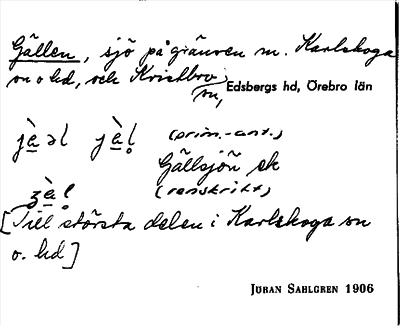 Gällen, sjö på gränsen m. Karlskoga
sn o hd, och Kristbro
sn, Edsbergs hd, Örebro län
jàəl jàl̥ (prim.-ant.)
Gällsjön ek
ʒàl̥ (renskrift)
[Till största delen i Karlskoga sn
o. hd]
JÖRAN SAHLGREN 1906